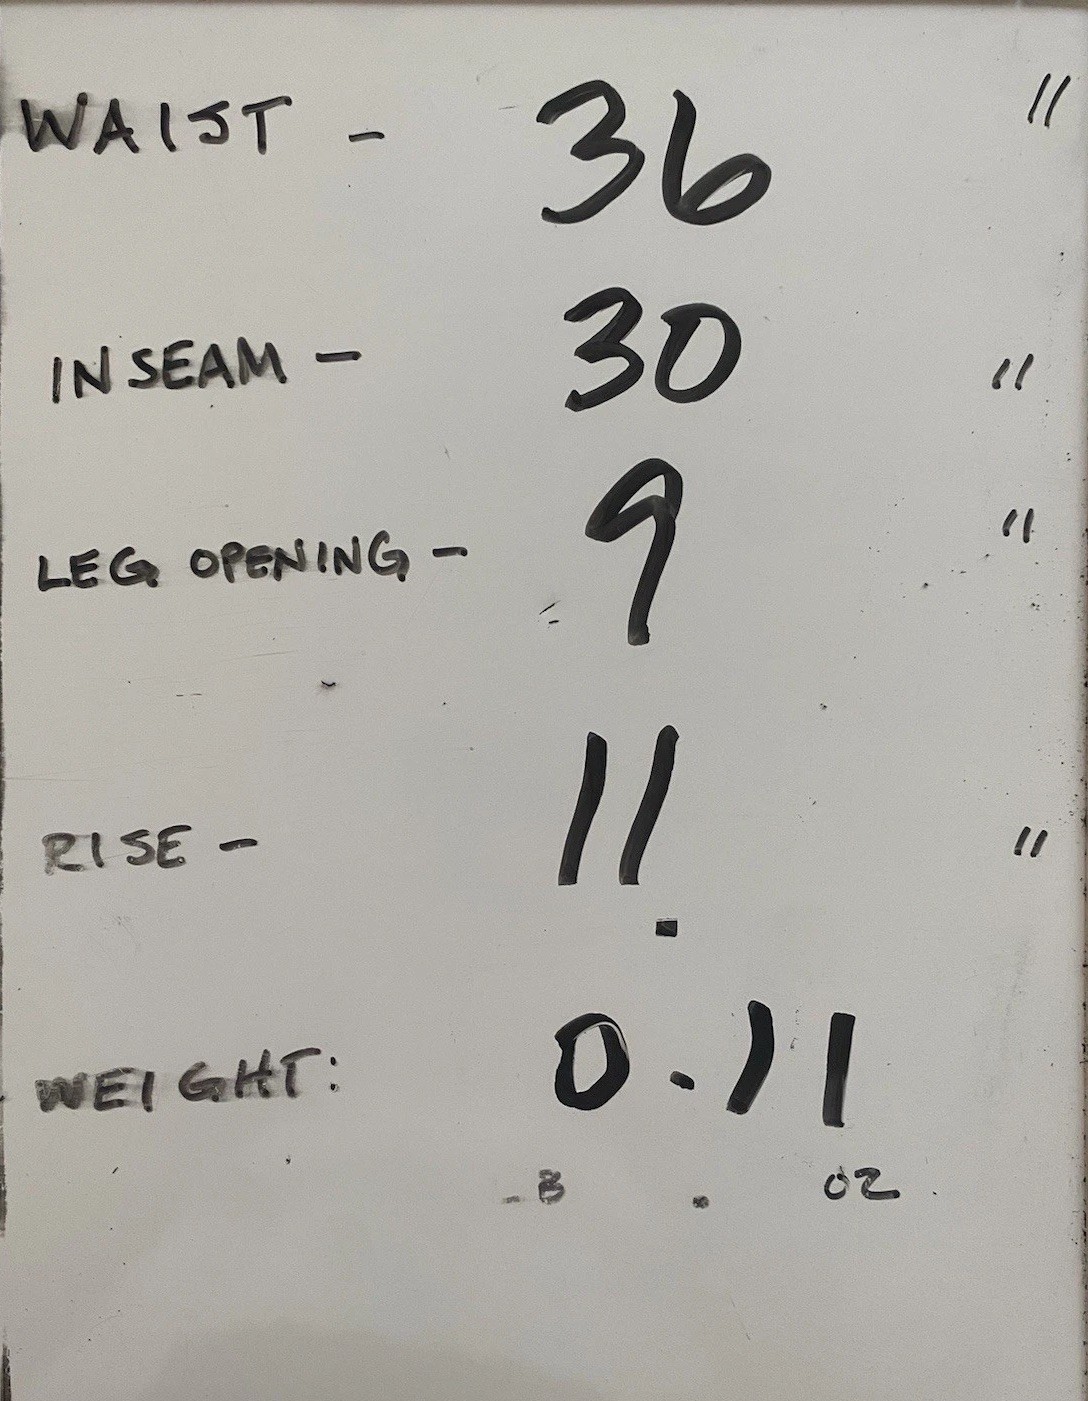 WAIST - 36 "
INSEAM - 30 "
LEG OPENING - 9 "
RISE - 11 "
WEIGHT: 0.11
B . OZ